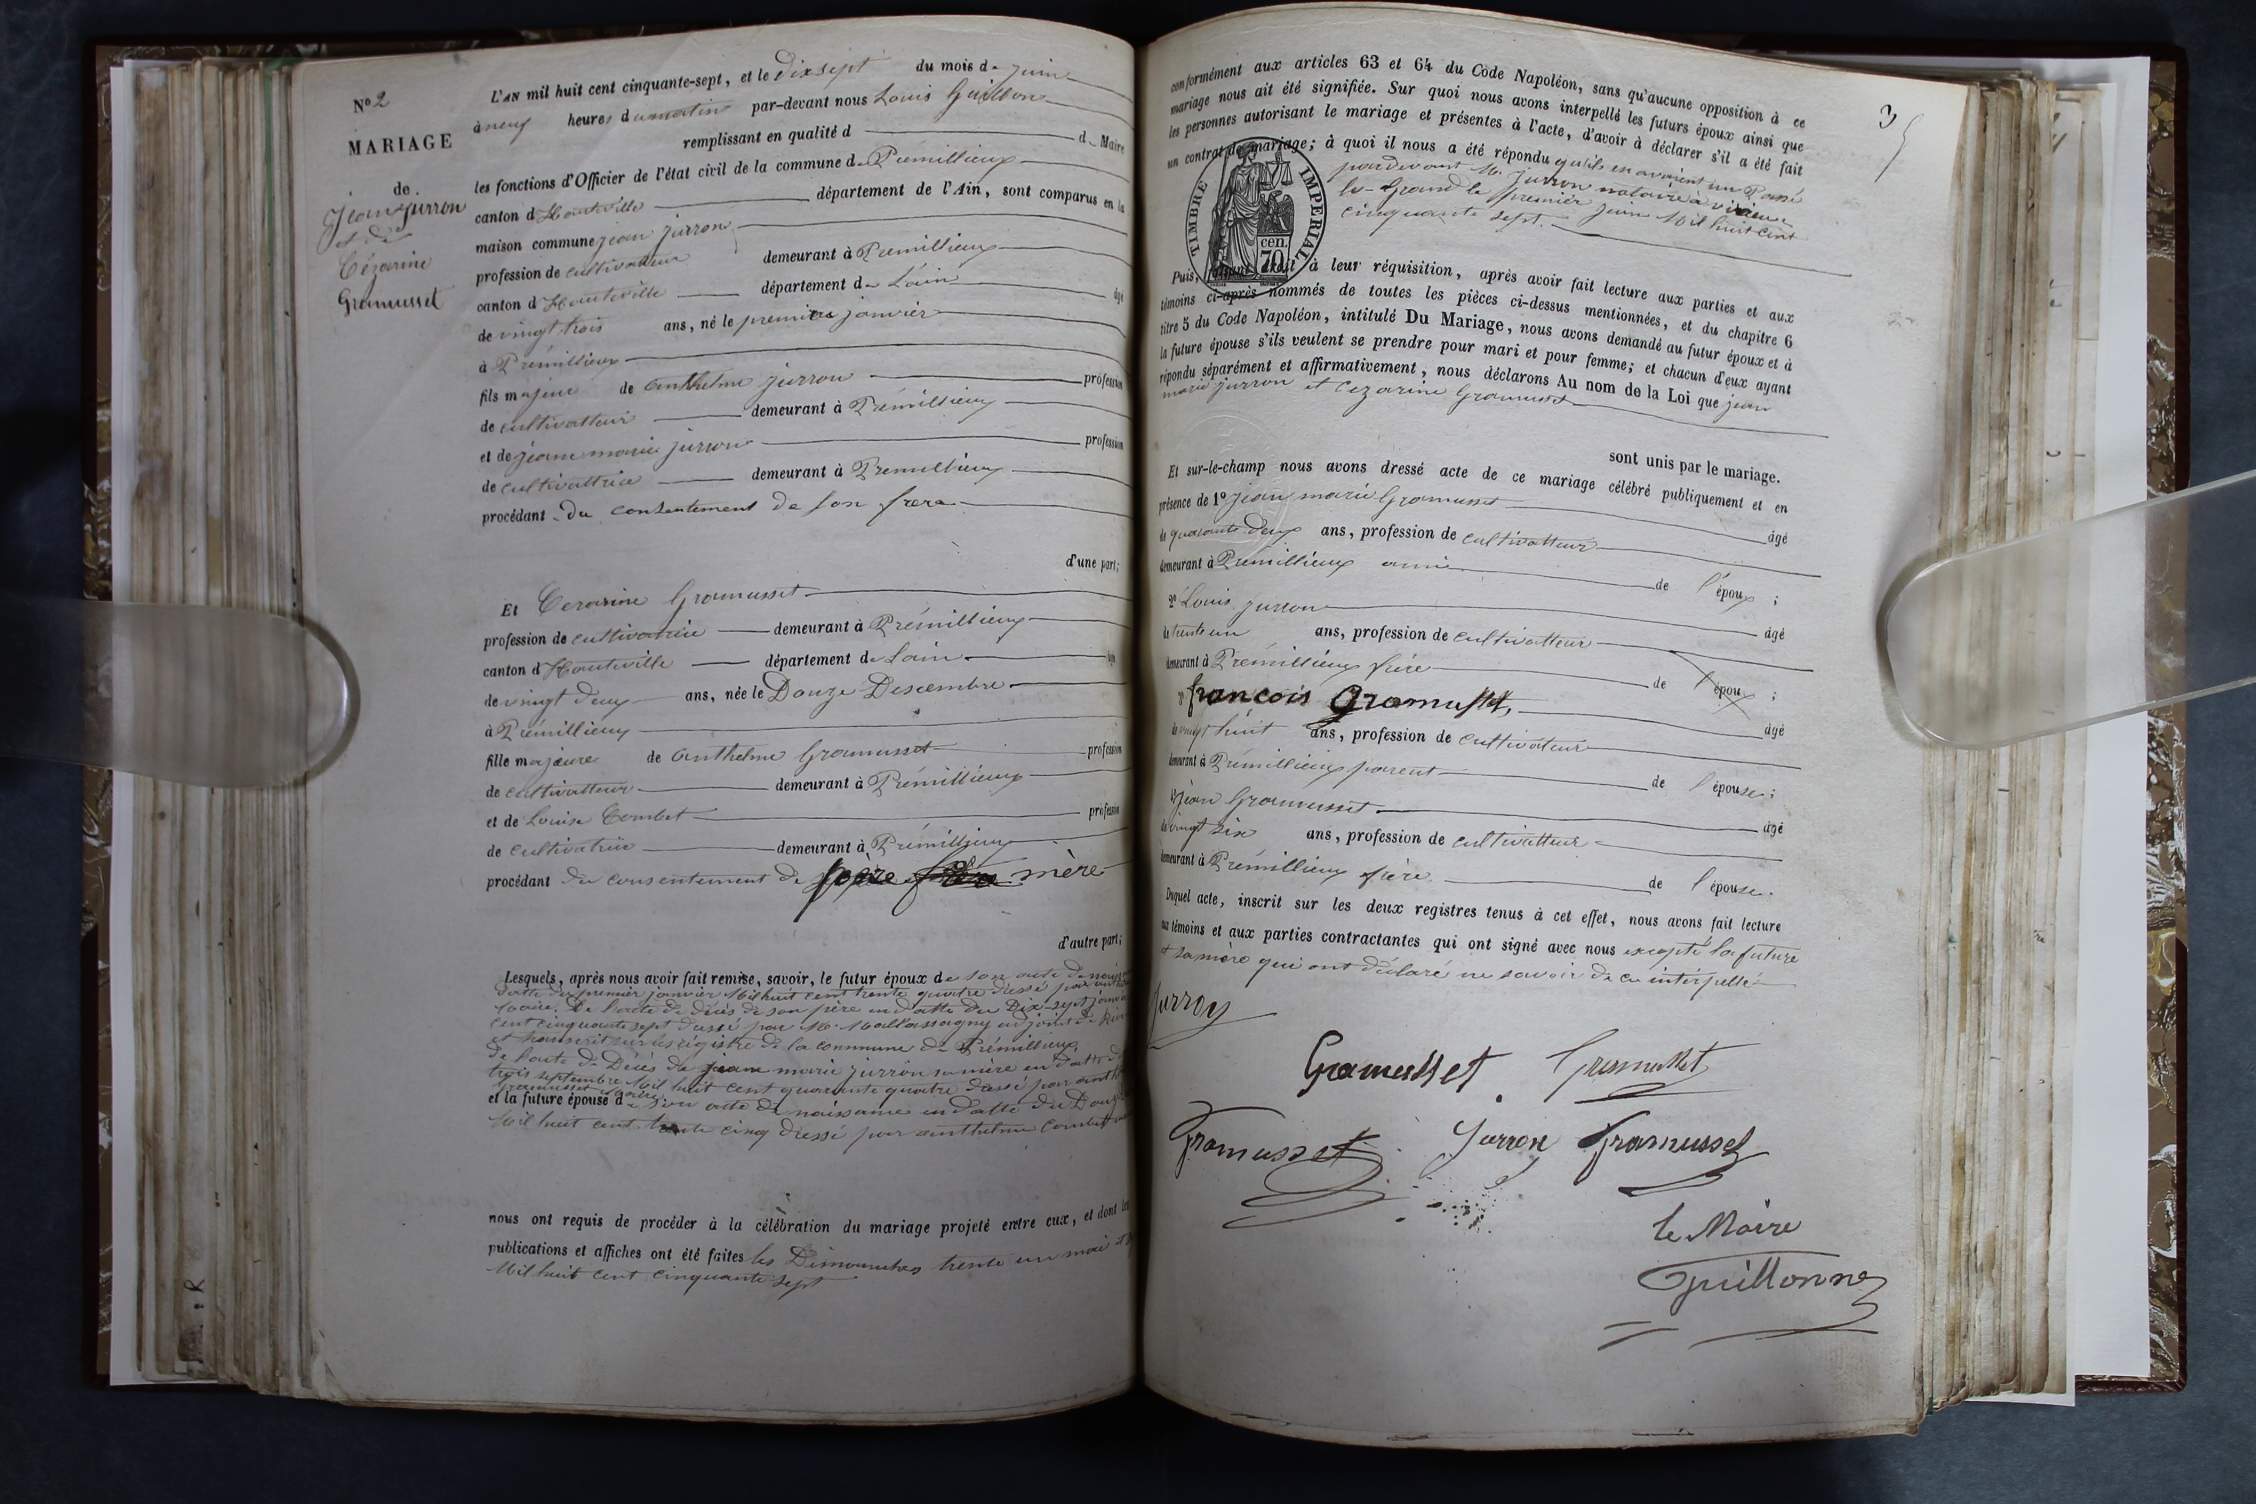 N° 2
MARIAGE
de
Jean Jurron
et de
Cézarine
Gramusset
L'AN mil huit cent cinquante-sept, et le Dix sept du mois de juin
à neuf heures du matin par-devant nous Louis Guillon
remplissant en qualité d de Maire
les fonctions d'Officier de l'état civil de la commune de Prémillieux
canton d'Hauteville département de l'Ain, sont comparus en la
maison commune jean jurron
profession de cultivateur demeurant à Prémillieux
canton d'Hauteville département de L'ain âgé
de vingt trois ans, né le premier janvier
à Prémillieux
fils majeur de anthelme jurron profession
de cultivatteur demeurant à Prémillieux
et de jeane marie jurron profession
de cultivattrice demeurant à Premillieux
procédant du consentement de son frere
d'une part;
Et Cezarine Gramusset
profession de cultivatrice demeurant à Prémillieux
canton d'Hauteville département de Lain
de vingt deux ans, née le Douze Descembre
à Prémillieux
fille majeure de anthelme Gramusset profession
de cultivatteur demeurant à Prémillieux
et de Louise Combet profession
de cultivatrice demeurant à Prémillieux
procédant du consentement de père mère
d'autre part;
Lesquels, après nous avoir fait remise, savoir, le futur époux de son acte de
datte du premier janvier Mil huit cent trente quatre dressé par
maire. De l'acte de décès de son père en datte du Dix-sept
cent cinquante sept dressé par Mr. adjoint de
et transcrit sur les régistre de la commune de Prémillieux
de l'acte de Décès de jeane marie jurron sa mère en datte
trois septembre Mil huit cent quarante quatre dressé par
Gramusset maire
et la future épouse de son acte de naissance en datte du Douze
Mil huit cent trente cinq dressé par anthelme Combet
nous ont requis de procéder à la célébration du mariage projeté entre eux, et dont les
publications et affiches ont été faites les Dimanches trente un mai
Mil huit cent cinquante sept
3
conformément aux articles 63 et 64 du Code Napoléon, sans qu'aucune opposition à ce
mariage nous ait été signifiée. Sur quoi nous avons interpellé les futurs époux ainsi que
les personnes autorisant le mariage et présentes à l'acte, d'avoir à déclarer s'il a été fait
un contrat de mariage; à quoi il nous a été répondu qu'ils en avaient un Passé
pardevant Me. Jurron notaire à virieu
le-Grand le premier juin Mil huit cent
cinquante sept.
TIMBRE IMPERIAL
cen.
70
Puis, faisant droit à leur réquisition, après avoir fait lecture aux parties et aux
témoins ci-après nommés de toutes les pièces ci-dessus mentionnées, et du chapitre 6
titre 5 du Code Napoléon, intitulé Du Mariage, nous avons demandé au futur époux et à
la future épouse s'ils veulent se prendre pour mari et pour femme; et chacun d'eux ayant
répondu séparément et affirmativement, nous déclarons Au nom de la Loi que jean
marie jurron et cezarine Gramusset
sont unis par le mariage.
Et sur-le-champ nous avons dressé acte de ce mariage célébré publiquement et en
présence de 1° jean marie Gramusset âgé
de quarante deux ans, profession de cultivatteur
demeurant à Prémillieux ami de l'époux ;
2° Louis jurron âgé
de trente un ans, profession de cultivatteur
demeurant à Prémillieux frère de l'époux ;
3° francois Gramusset, âgé
de vingt huit ans, profession de cultivateur
demeurant à Prémillieux parent de l'épouse;
4° jean Gramusset âgé
de vingt six ans, profession de cultivatteur
demeurant à Prémillieux frère de l'épouse.
Duquel acte, inscrit sur les deux registres tenus à cet effet, nous avons fait lecture
aux témoins et aux parties contractantes qui ont signé avec nous excepté la future
et sa mère qui ont déclaré ne savoir de ce interpellé
Jurron
Gramusset Gramusset
Gramusset Jurron Gramusset
le Maire
Guillonne